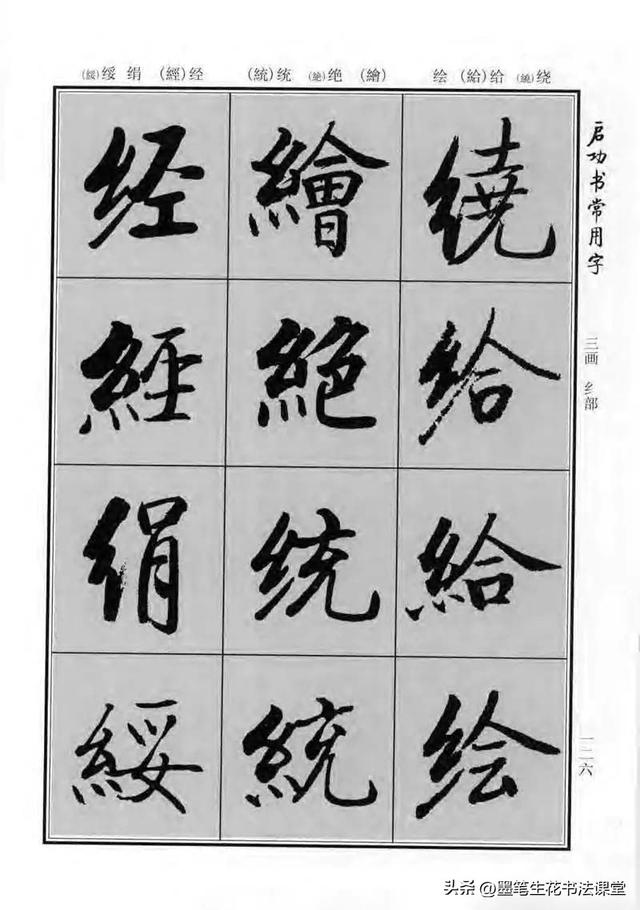 (綏)绥 绢 (經)经 (統)统 (絶)绝 (繪) 绘 (給)给 (繞)绕
启功书常用字
三画 纟部
一二六
繞
给
給
绘
繪
絶
统
統
经
經
绢
綏
头条 @墨笔生花书法课堂